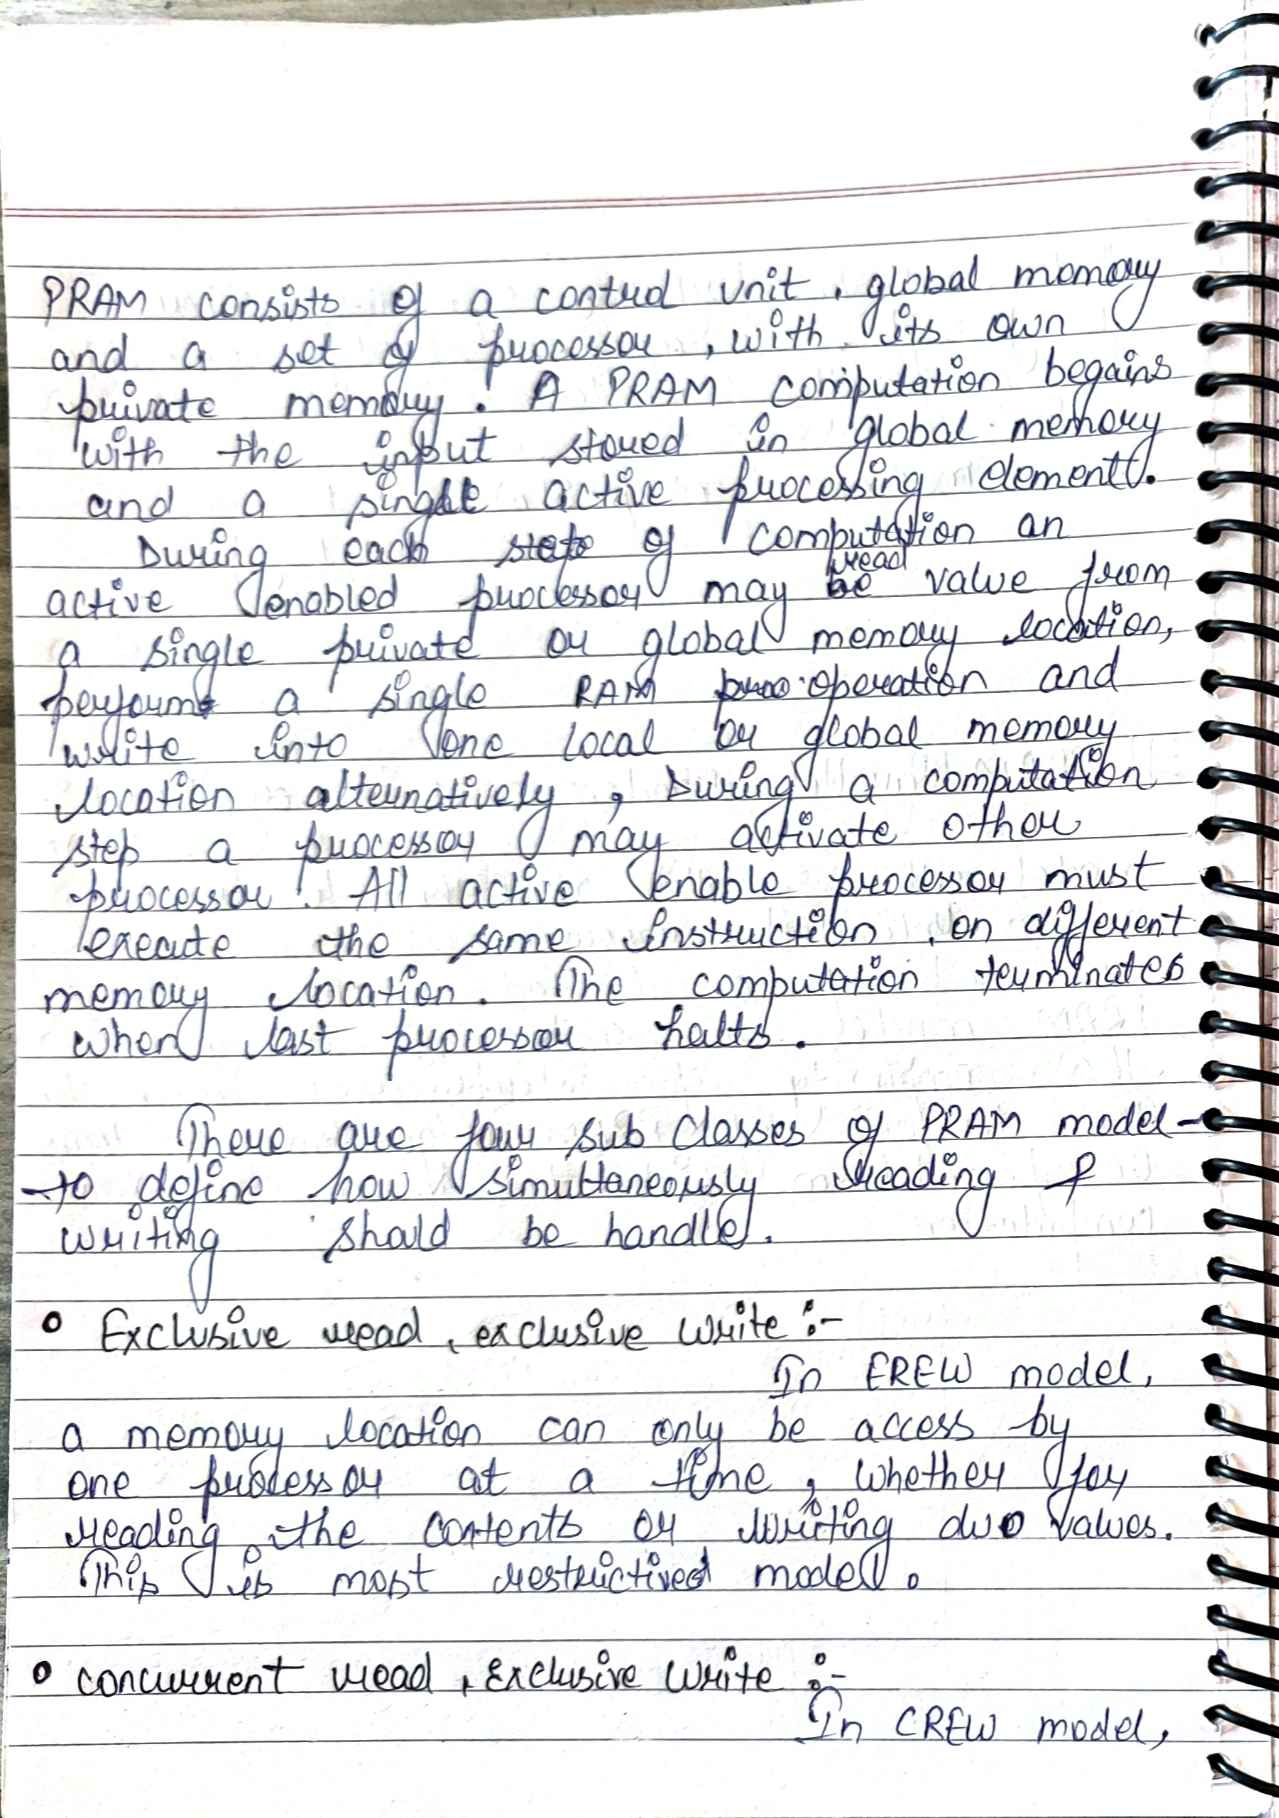 PRAM consists of a control unit, global momory
and a set of processor, with its own
private memory. A PRAM computation begains
with the input stored in global memory
and a single active processing element.
During each step of computation an
active enabled processor may read value from
a single private or global memory location,
perform a single RAM operation and
write into one local or global memory
location alternatively, During a computation
step a processor may activate other
processor. All active enable processor must
execute the same instruction, on different
memory location. The computation terminates
when last processor halts.
There are four sub classes of PRAM model
to define how simultaneously reading &
writing should be handle.
• Exclusive read, exclusive write :-
In EREW model,
a memory location can only be access by
one processor at a time, whether for
reading the contents or writing values.
This is most restrictived model.
• concurrent read, Exclusive write :-
In CREW model,